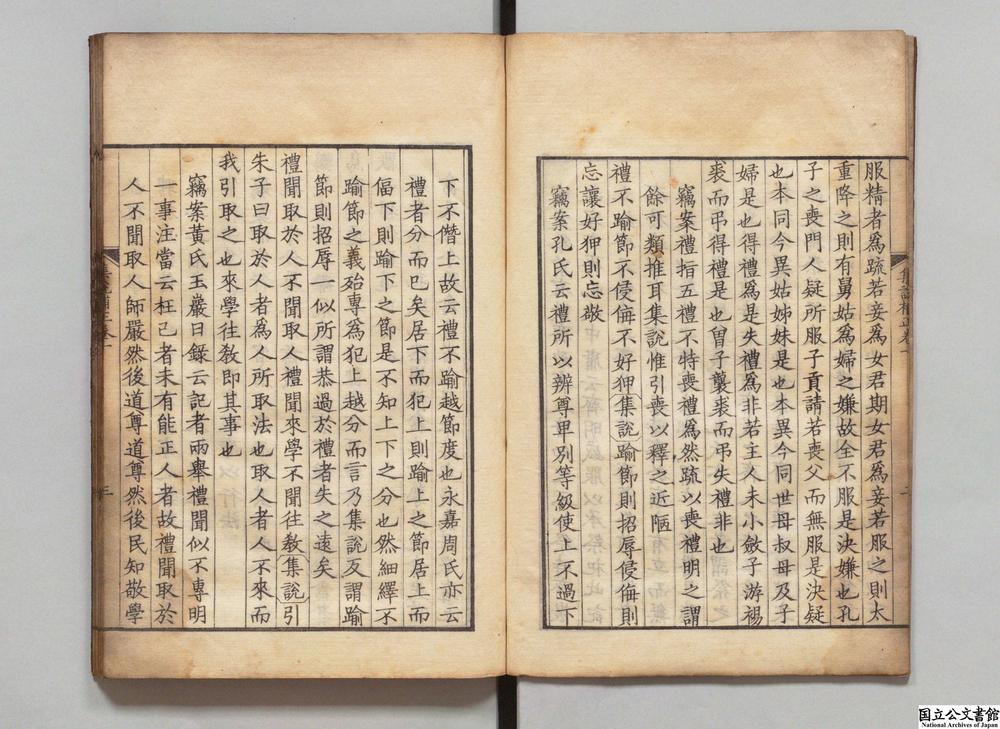 服精者爲疏若妾爲女君期女君爲妾若服之則太
重降之則有舅姑爲婦之嫌故全不服是決嫌也孔
子之喪門人疑所服子貢請若喪父而無服是決疑
也本同今異姑姊妹是也本異今同世母叔母及子
婦是也得禮爲是失禮爲非若主人未小斂子游裼
裘而弔得禮是也曾子襲裘而弔失禮非也
竊案禮指五禮不特喪禮爲然疏以喪禮明之謂
餘可類推耳集說惟引喪以釋之近陋
禮不踰節不侵侮不好狎集說踰節則招辱侵侮則
忘讓好狎則忘敬
竊案孔氏云禮所以辨尊卑別等級使上不過下
下不僭上故云禮不踰越節度也永嘉周氏亦云
禮者分而已矣居下而犯上則踰上之節居上而
偪下則踰下之節是不知上下之分也然細繹不
踰節之義殆專爲犯上越分而言乃集說反謂踰
節則招辱一似所謂恭過於禮者失之遠矣
禮聞取於人不聞取人禮聞來學不聞往敎集說引
朱子曰取於人者為人所取法也取人者人不來而
我引取之也來學往敎即其事也
竊案黃氏玉巖日錄云記者兩舉禮聞似不專明
一事注當云枉己者未有能正人者故禮聞取於
人不聞取人師嚴然後道尊道尊然後民知敬學
国立公文書館
National Archives of Japan